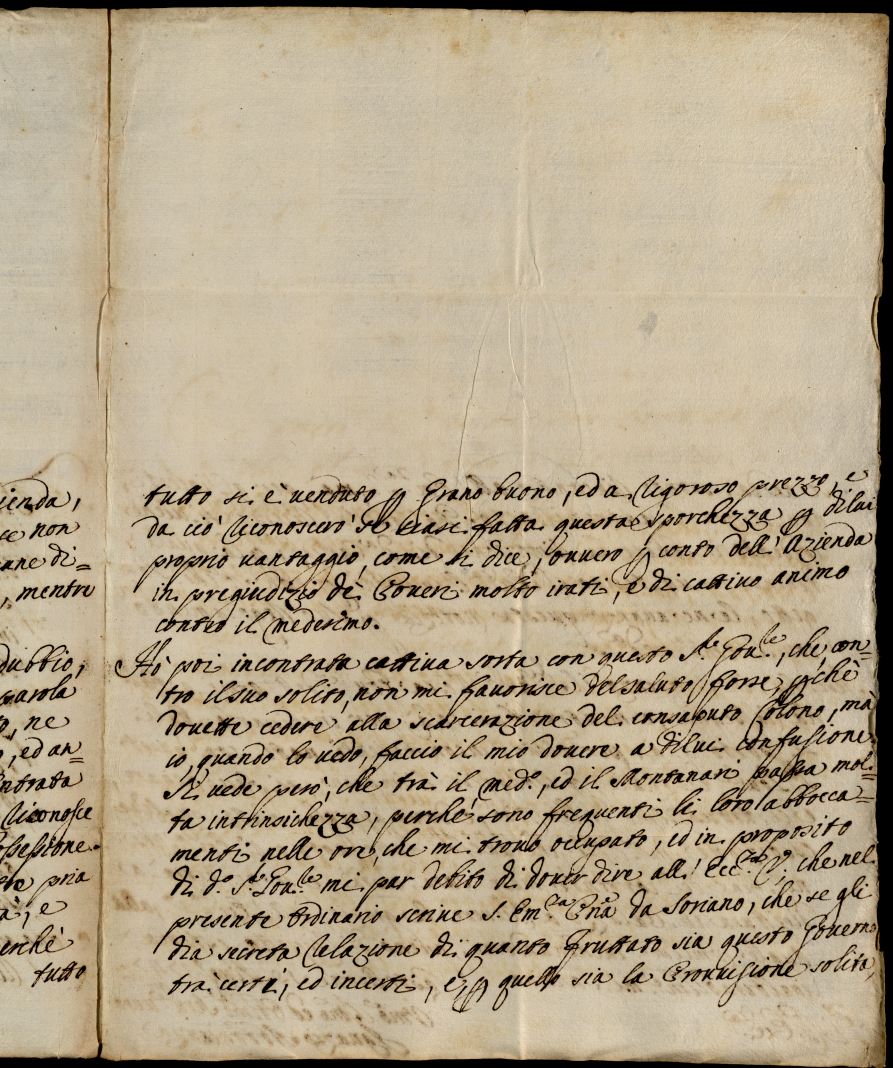 ienda,
ce non
ane di=
, mentre
dubbio,
parola
o, ne
o, ed an=
ntrata
riconosce
ssessione.
re pria
à, e
perchè
tutto
tutto si è venduto p Grano buono, ed a rigoroso prezzo, e
da ciò riconoscerò se siasi fatta questa sporchezza p di lui
proprio vantaggio, come si dice, ovvero p conto dell' Azienda
in pregiudizio de' Poveri molto irati, e di cattivo animo
contro il medesimo.
Hò poi incontrata cattiva sorta con questo S.r Gov.le, che, con=
tro il suo solito, non mi favorisce del saluto forse, p chè
dovette cedere alla scarcerazione del consaputo Colono, mà
io, quando lo vedo, faccio il mio dovere a di lui confusione.
Si vede però, che trà il med.o, ed il Montanari passa mol=
ta intrinsichezza, perchè sono frequenti li loro abbocca=
menti nelle ore, che mi trovo occupato, ed in proposito
di d.o S.r Gov.le mi par debito di dover dire all' Ecc.za V., che nel
presente Ordinario scrive S. Em.za Pria da Soriano, che se gli
dia secreta relazione di quanto fruttato sia questo Governo
trà certi, ed incerti, e p quello sia la Provvisione solita,